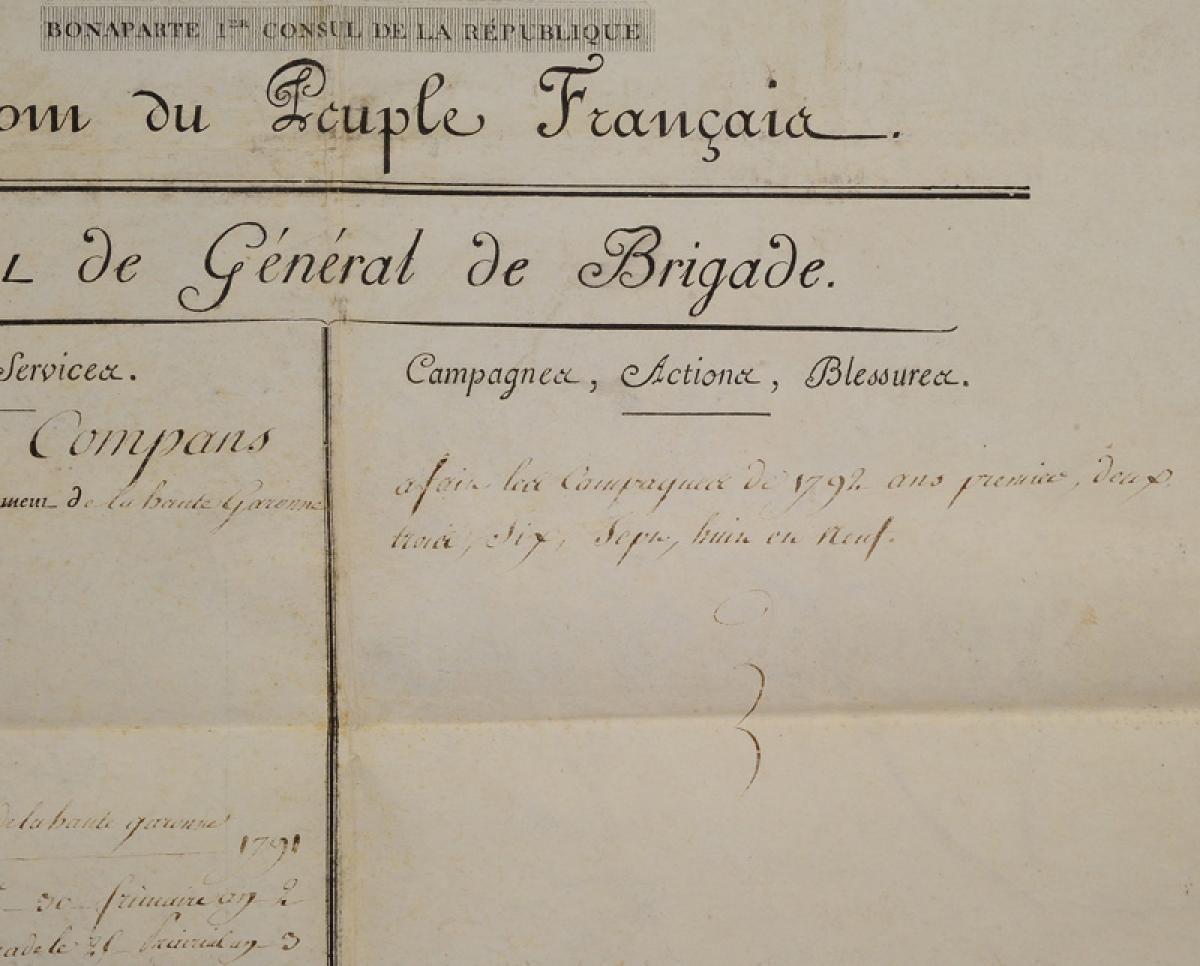 BONAPARTE 1ER CONSUL DE LA RÉPUBLIQUE
om du Peuple Français.
L de Général de Brigade.
Services.
Campagnes, Actions, Blessures.
Compans
de la haute Garonne
a fait les Campagnes de 1792 ans premier, deux
trois, Six, Sept, huit et Neuf.
de la haute garonne
1791
30 frimaire an 2
le prairial an 3